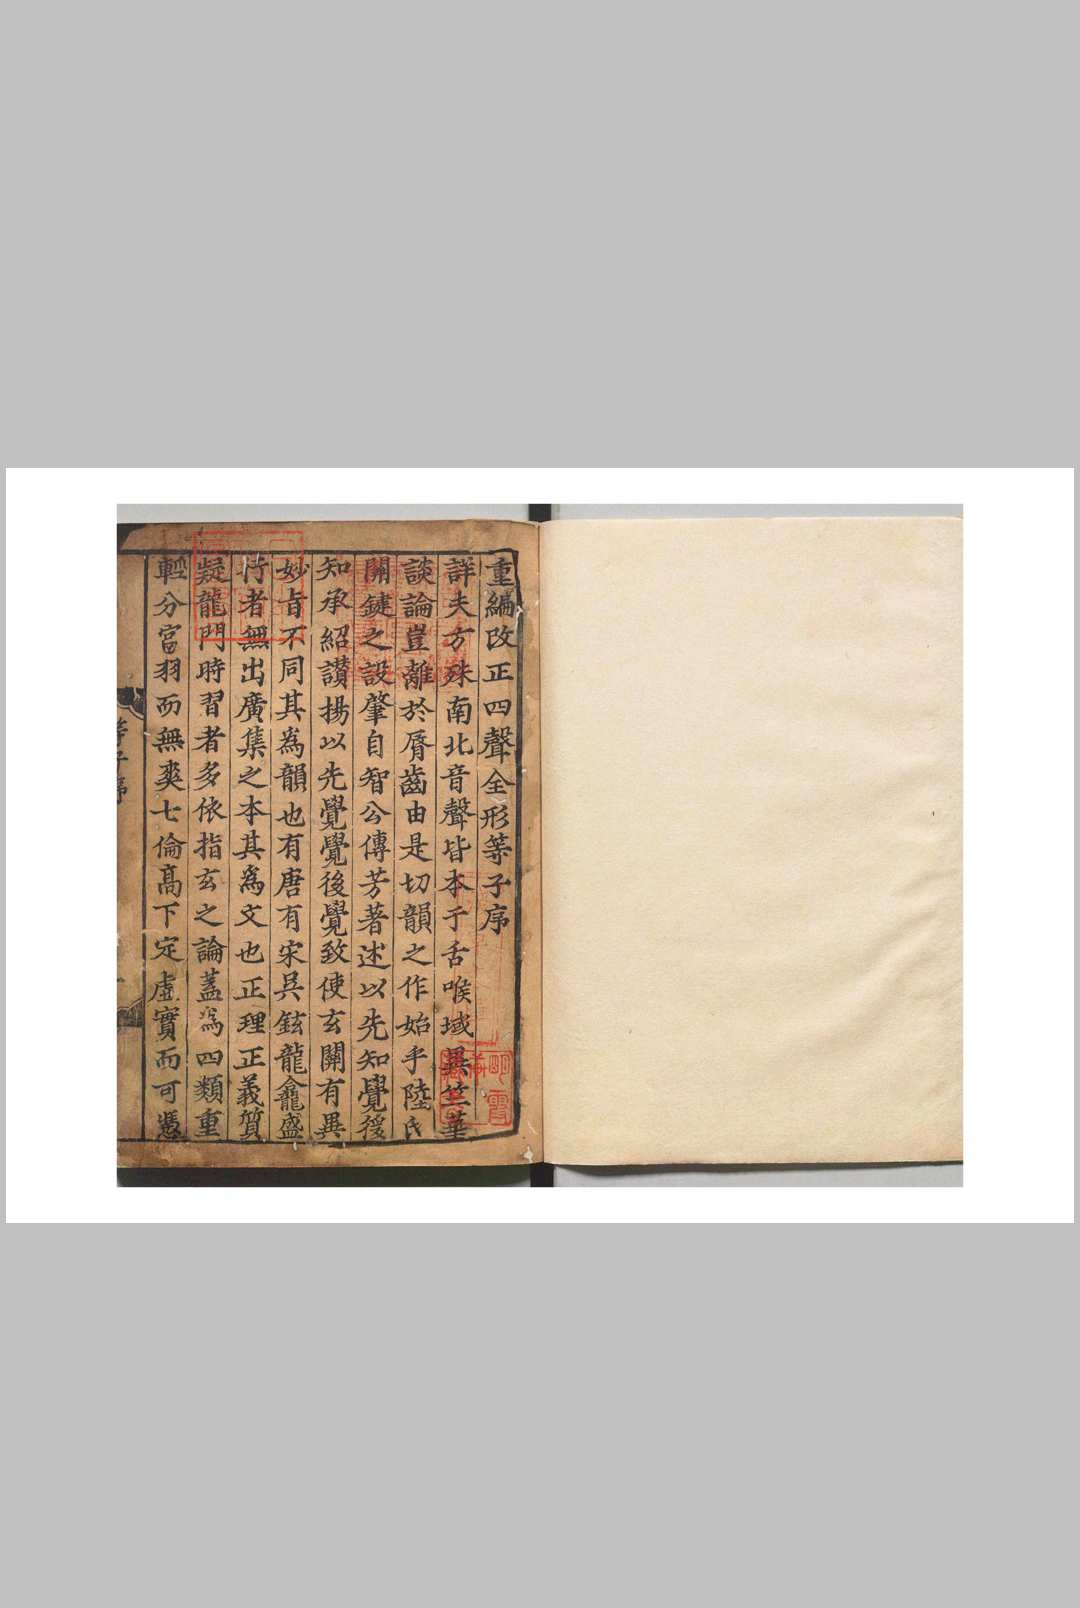 重編改正四聲全形等子序
詳夫方殊南北音聲皆本于舌喉域異竺華
談論豈離於脣齒由是切韻之作始乎陸氏
關鍵之設肇自智公傳芳著述以先知覺後
知承紹讃揚以先覺覺後覺致使玄關有異
妙旨不同其為韻也有唐有宋吳鉉龍龕盛
行者無出廣集之本其為文也正理正義質
疑龍門時習者多依指玄之論蓋為四類重
輕分宮羽而無爽七倫高下定虛實而可憑
等子序